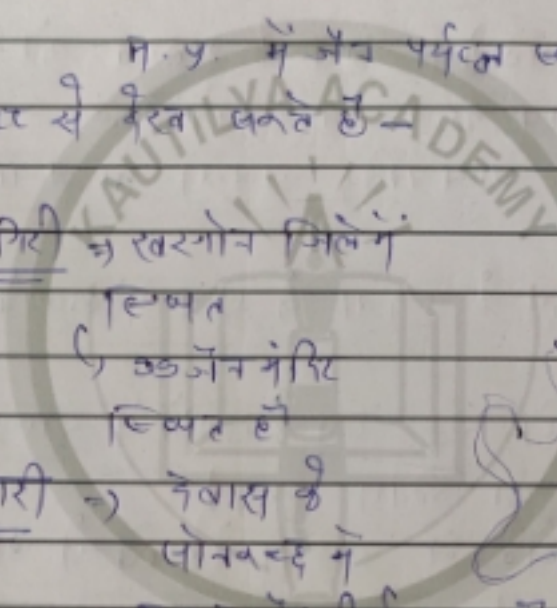 म.प्र. में जैन पर्यटन
से देख सकते है –
गिरी ⇒ खरगोन जिले में
स्थित
↳ जैन मंदिर
स्थित है
⇒ देवास के
सोनकच्छ में
KAUTILYA ACADEMY